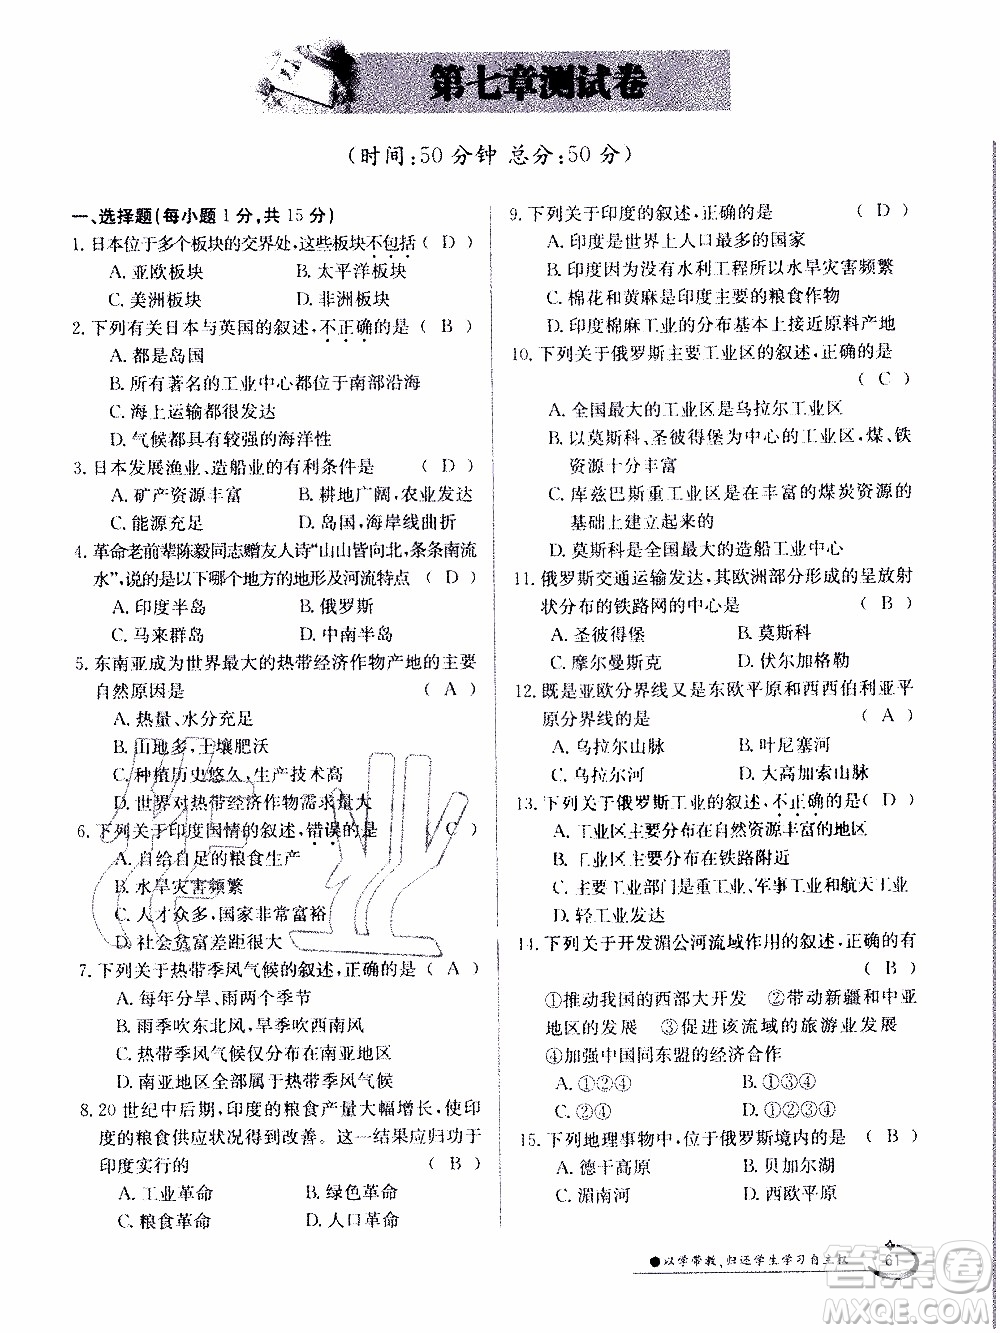 第七章测试卷
(时间:50分钟 总分:50分)
一、选择题(每小题1分,共15分)
1. 日本位于多个板块的交界处,这些板块不包括( D )
A. 亚欧板块 B. 太平洋板块
C. 美洲板块 D. 非洲板块
2. 下列有关日本与英国的叙述,不正确的是( B )
A. 都是岛国
B. 所有著名的工业中心都位于南部沿海
C. 海上运输都很发达
D. 气候都具有较强的海洋性
3. 日本发展渔业、造船业的有利条件是 ( D )
A. 矿产资源丰富 B. 耕地广阔,农业发达
C. 能源充足 D. 岛国,海岸线曲折
4. 革命老前辈陈毅同志赠友人诗“山山皆向北,条条南流
水”,说的是以下哪个地方的地形及河流特点 ( D )
A. 印度半岛 B. 俄罗斯
C. 马来群岛 D. 中南半岛
5. 东南亚成为世界最大的热带经济作物产地的主要
自然原因是 ( A )
A. 热量、水分充足
B. 山地多,土壤肥沃
C. 种植历史悠久,生产技术高
D. 世界对热带经济作物需求量大
6. 下列关于印度国情的叙述,错误的是 ( C )
A. 自给自足的粮食生产
B. 水旱灾害频繁
C. 人才众多,国家非常富裕
D. 社会贫富差距很大
7. 下列关于热带季风气候的叙述,正确的是 ( A )
A. 每年分旱、雨两个季节
B. 雨季吹东北风,旱季吹西南风
C. 热带季风气候仅分布在南亚地区
D. 南亚地区全部属于热带季风气候
8. 20世纪中后期,印度的粮食产量大幅增长,使印
度的粮食供应状况得到改善。这一结果应归功于
印度实行的 ( B )
A. 工业革命 B. 绿色革命
C. 粮食革命 D. 人口革命
9. 下列关于印度的叙述,正确的是 ( D )
A. 印度是世界上人口最多的国家
B. 印度因为没有水利工程所以水旱灾害频繁
C. 棉花和黄麻是印度主要的粮食作物
D. 印度棉麻工业的分布基本上接近原料产地
10. 下列关于俄罗斯主要工业区的叙述,正确的是
( C )
A. 全国最大的工业区是乌拉尔工业区
B. 以莫斯科、圣彼得堡为中心的工业区,煤、铁
资源十分丰富
C. 库兹巴斯重工业区是在丰富的煤炭资源的
基础上建立起来的
D. 莫斯科是全国最大的造船工业中心
11. 俄罗斯交通运输发达,其欧洲部分形成的呈放射
状分布的铁路网的中心是 ( B )
A. 圣彼得堡 B. 莫斯科
C. 摩尔曼斯克 D. 伏尔加格勒
12. 既是亚欧分界线又是东欧平原和西西伯利亚平
原分界线的是 ( A )
A. 乌拉尔山脉 B. 叶尼塞河
C. 乌拉尔河 D. 大高加索山脉
13. 下列关于俄罗斯工业的叙述,不正确的是 ( D )
A. 工业区主要分布在自然资源丰富的地区
B. 工业区主要分布在铁路附近
C. 主要工业部门是重工业、军事工业和航天工业
D. 轻工业发达
14. 下列关于开发湄公河流域作用的叙述,正确的有
( B )
①推动我国的西部大开发 ②带动新疆和中亚
地区的发展 ③促进该流域的旅游业发展
④加强中国同东盟的经济合作
A. ①②④ B. ①③④
C. ②④ D. ①②③④
15. 下列地理事物中,位于俄罗斯境内的是 ( B )
A. 德干高原 B. 贝加尔湖
C. 湄南河 D. 西欧平原
●以学带教,归还学生学习自主权
61
作业
答案圈
MXQE.COM